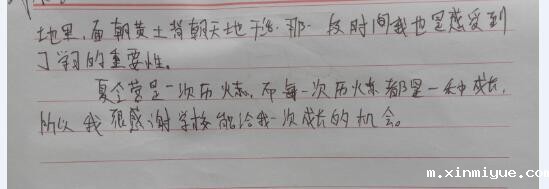 地里，面朝黄土背朝天地干活，那一段时间我也是感受到
了学习的重要性。
夏令营是一次历炼，而每一次历炼都是一种成长，
所以我很感谢学校能给我一次成长的机会。
m.xinmiyue.com